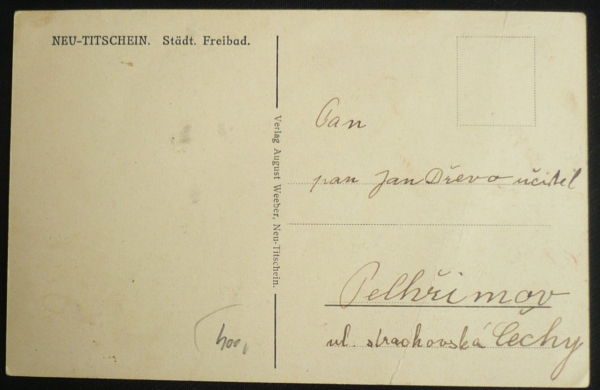 NEU-TITSCHEIN. Städt. Freibad.
Verlag August Weeber, Neu-Titschein.
Pan
pan Jan Dřevo učitel
Pelhřimov
ul. strachovská Čechy
400,